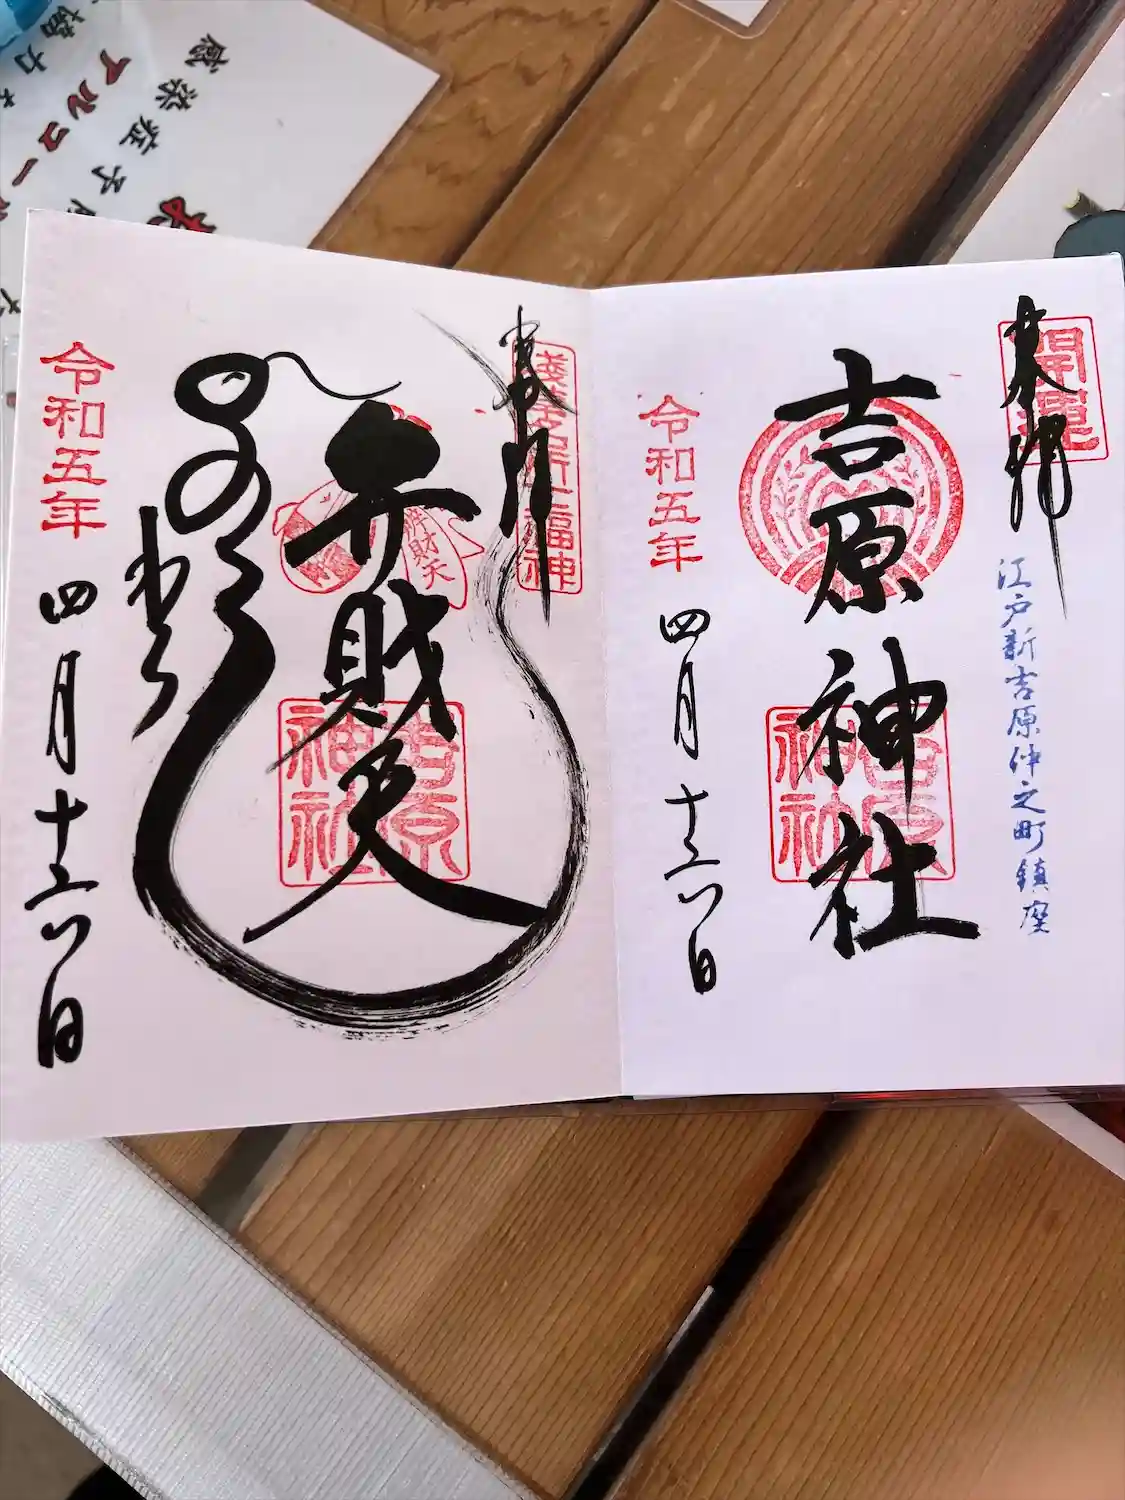 開運
奉拝
江戸新吉原仲之町鎮座
吉原神社
吉原神社
令和五年
四月十六日
浅草名所七福神
奉拝
弁財天
弁財天
吉原神社
令和五年
四月十六日
感染症予
アルコー
協力